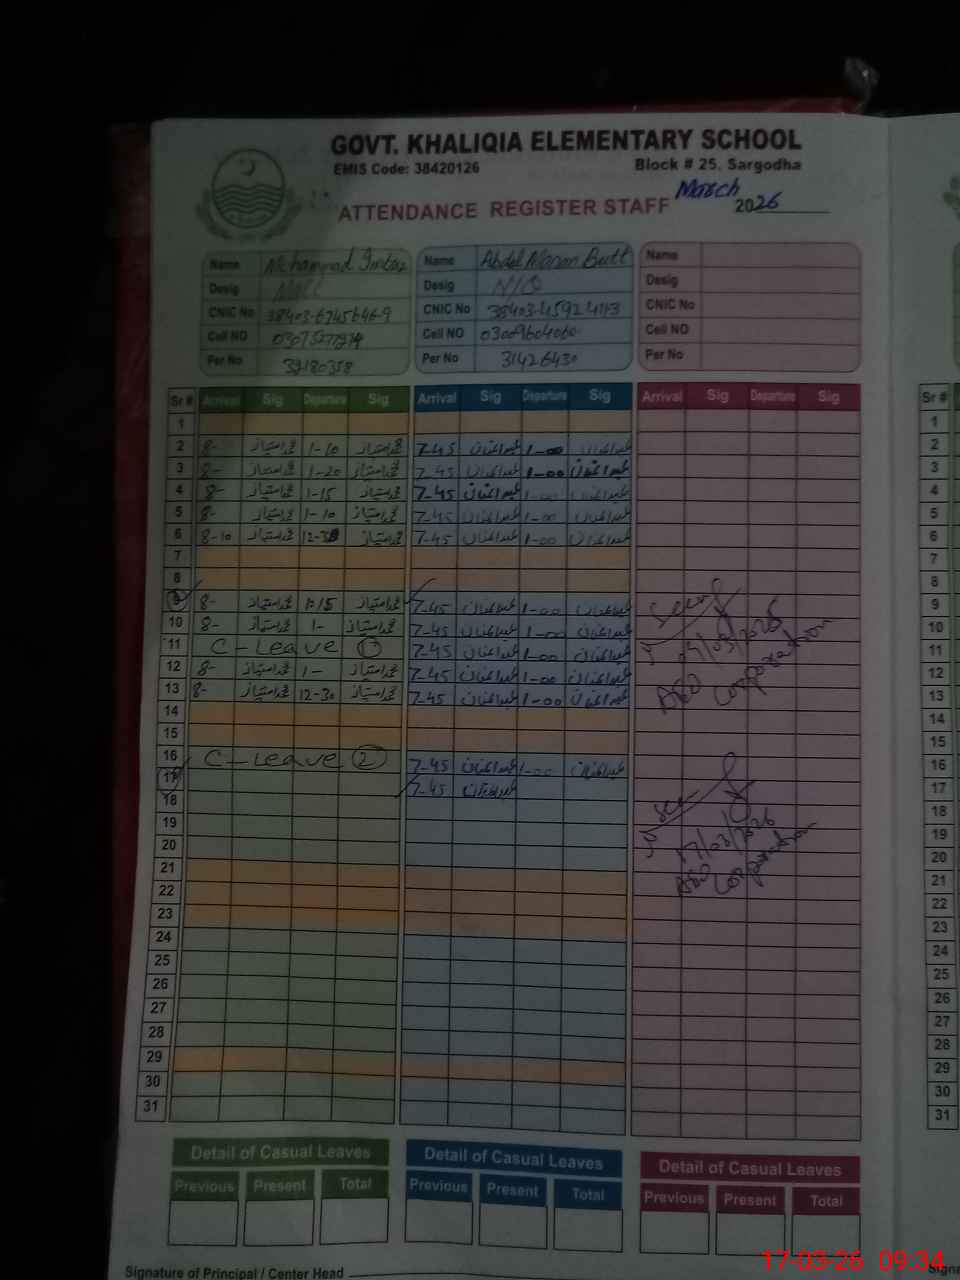 GOVT. KHALIQIA ELEMENTARY SCHOOL
EMIS Code: 38420126 Block # 25, Sargodha
ATTENDANCE REGISTER STAFF March 2026
Name Mohammad Imtiaz Name Abdul Manan Butt Name
Desig Desig N/Q Desig
CNIC No 38403-6745646-9 CNIC No 38403-4592411-3 CNIC No
Cell NO Cell NO 03009604060 Cell NO
Per No 39180358 Per No 31426430 Per No
Sr # Arrival Sig Departure Sig Arrival Sig Departure Sig Arrival Sig Departure Sig Sr #
1 1
2 8- محمد امتیاز 1-10 محمد امتیاز 7-45 عبدالمنان 1-00 عبدالمنان 2
3 8- محمد امتیاز 1-20 محمد امتیاز 7-45 عبدالمنان 1-00 عبدالمنان 3
4 8- محمد امتیاز 1-15 محمد امتیاز 7-45 عبدالمنان 1-00 عبدالمنان 4
5 8- محمد امتیاز 1-10 محمد امتیاز 7-45 عبدالمنان 1-00 عبدالمنان 5
6 8-10 محمد امتیاز 12-30 محمد امتیاز 7-45 عبدالمنان 1-00 عبدالمنان 6
7 7
8 8
9 8- محمد امتیاز 1:15 محمد امتیاز 7-45 عبدالمنان 1-00 عبدالمنان Seen 9
10 8- محمد امتیاز 1- محمد امتیاز 7-45 عبدالمنان 1-00 عبدالمنان 10
11 C-Leave 1 7-45 عبدالمنان 1-00 عبدالمنان 09/03/2026 11
12 8- محمد امتیاز 1- محمد امتیاز 7-45 عبدالمنان 1-00 عبدالمنان AEO 12
13 8- محمد امتیاز 12-30 محمد امتیاز 7-45 عبدالمنان 1-00 عبدالمنان Corporation 13
14 14
15 15
16 C-Leave 2 7-45 عبدالمنان 1-00 عبدالمنان 16
17 7-45 عبدالمنان 17
18 Seen 18
19 19
20 17/03/2026 20
21 AEO Corporation 21
22 22
23 23
24 24
25 25
26 26
27 27
28 28
29 29
30 30
31 31
Detail of Casual Leaves Detail of Casual Leaves Detail of Casual Leaves
Previous Present Total Previous Present Total Previous Present Total
Signature of Principal / Center Head
17-03-26 09:34